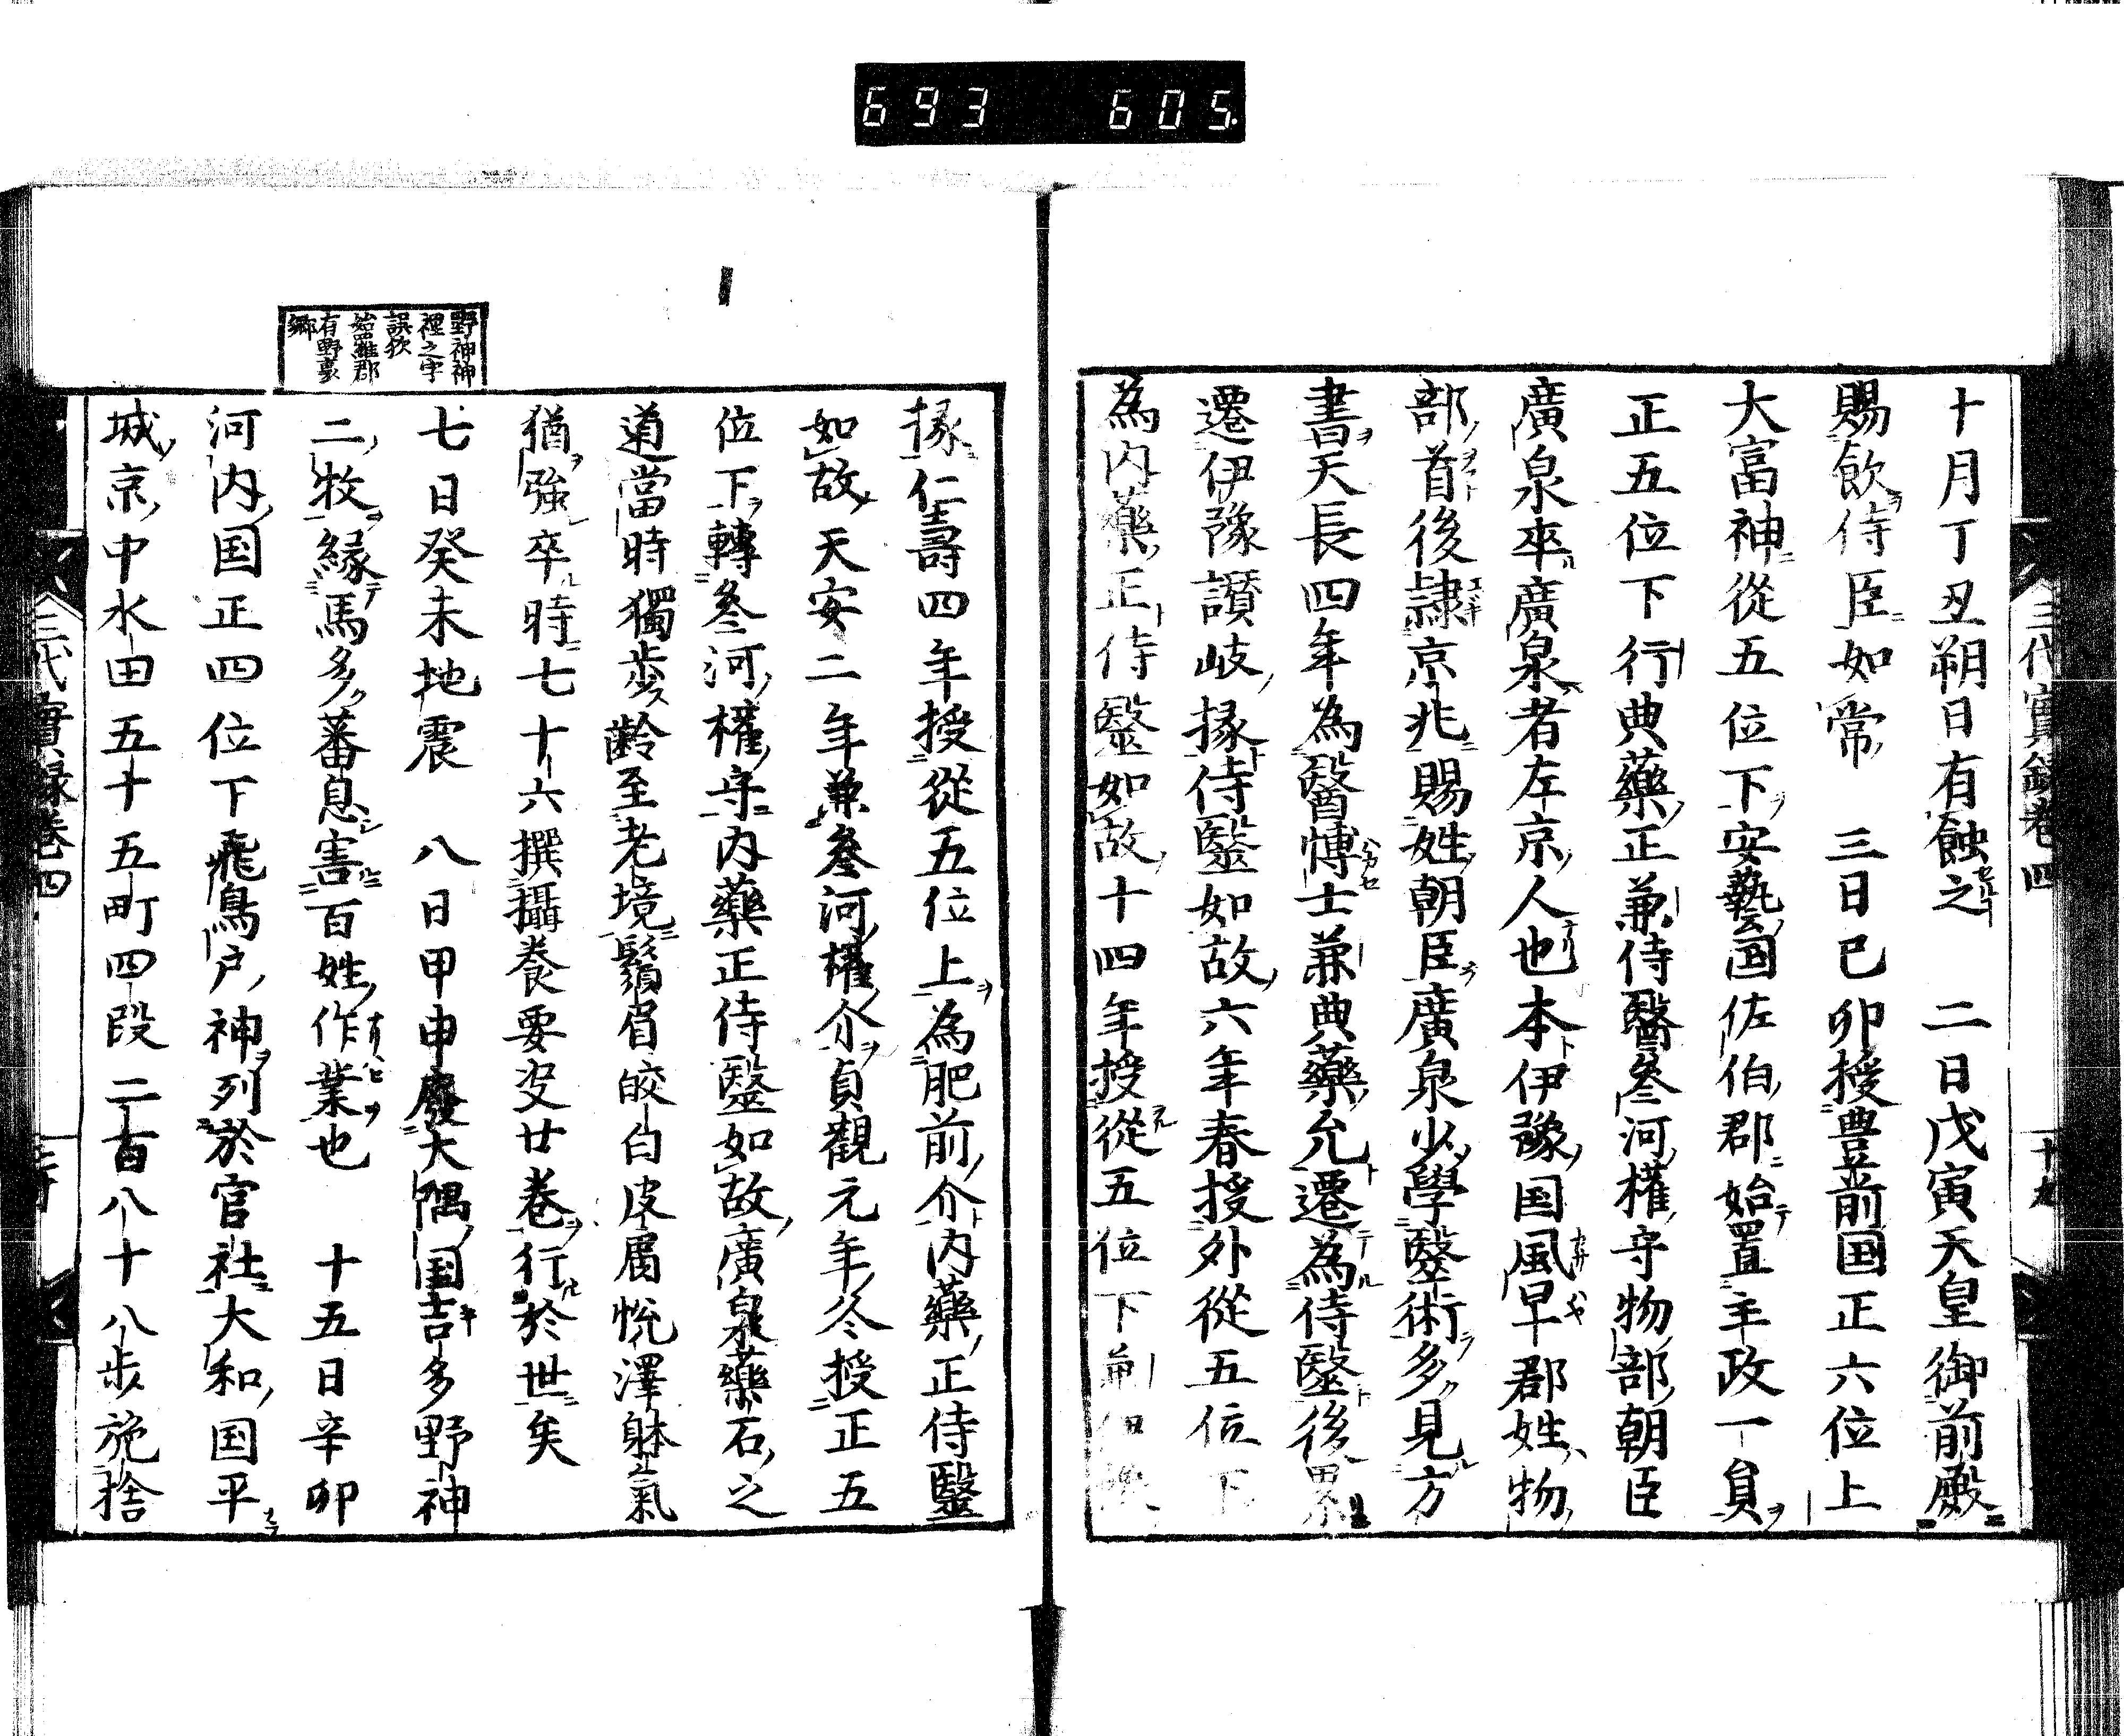 693 605.
三代實錄卷四
十月丁丑朔日有蝕之　二日戊寅天皇御前殿
賜飲侍臣如常　三日己卯授豊前国正六位上
大富神從五位下安藝国佐伯郡始置主政一負
正五位下行典藥正兼侍醫叅河權守物部朝臣
廣泉卒廣泉者左京人也本伊豫国風早郡姓物
部首後隷京兆賜姓朝臣廣泉少學毉術多見方
書天長四年為醫博士兼典藥允遷為侍毉後累
遷伊豫讃岐掾侍毉如故六年春授外從五位下
為内藥正侍毉如故十四年授從五位下兼伊豫
掾仁壽四年授從五位上為肥前介内藥正侍毉
如故天安二年兼叅河權介貞觀元年冬授正五
位下轉叅河權守内藥正侍毉如故廣泉藥石之
道當時獨歩齢至老境鬚眉皎白皮膚悅澤躰氣
猶強卒時七十六撰攝養要𡚖廿卷行於世矣
七日癸未地震　八日甲申廢大隅国吉多野神
二牧縁馬多蕃息害百姓作業也　十五日辛卯
河内国正四位下飛鳥戸神列於官社大和国平
城京中水田五十五町四段二百八十八歩施捨
野神神
裡之字
誤欤
姶羅郡
有野裏
郷
三代實録卷四